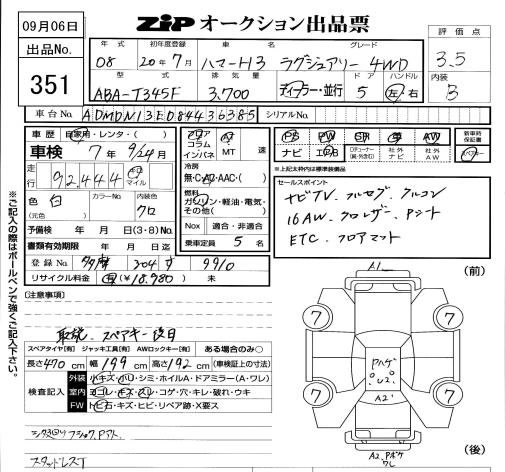 09月06日
ZIP オークション出品票
評価点
3.5
内装
B
出品No.
351
年式 初年度登録 車名 グレード
08 20年7月 ハマーH3 ラグジュアリー 4WD
型式 排気量 ドア ハンドル
ABA-T345F 3,700 ディーラー・並行 5 左右
車台No. ADMDN13E084436385 シリアルNo.
車歴 自家用・レンタ・( )
車検 7年 9/24月
走行 92,444 km マイル
色 白 カラーNo. 内装色 クロ
(元色)
予備検 年 月 日(3・8)No.
書類有効期限 年 月 日迄
登録No. 304 す 9910
リサイクル料金 (¥18,980) 未
エアコン コラム インパネ
AT MT 速
冷房
無・C・AC・AAC・( )
燃料
ガソリン・軽油・電気・その他( )
Nox 適合・非適合
乗車定員 5 名
PS PW SR 革 AW
ナビ TV
社外ナビ 社外AW
新車時保証書
※上記太枠内は標準装備品
セールスポイント
ナビTV フルセグ クルコン
16AW クロレザー Pシート
ETC フロアマット
※ご記入の際はボールペンで強くご記入下さい。
[注意事項]
取説、スペアキー後日
スペアタイヤ[有] ジャッキ工具[有] AWロックキー[有] ある場合のみ○
長さ 470 cm 幅 199 cm 高さ 192 cm (車検証上の寸法)
検査記入
外装 小キズ・小凹・シミ・ホイルA・ドアミラー(A・ワレ)
室内 ヨゴレ・キズ・スリ・コゲ・穴・キレ・破れ・ウキ
FW トビ石・キズ・ヒビ・リペア跡・X要ス
スタッドレスT
A1
(前)
7
7
7
7
ハゲ
U2
A2
(後)
A2
ワレ